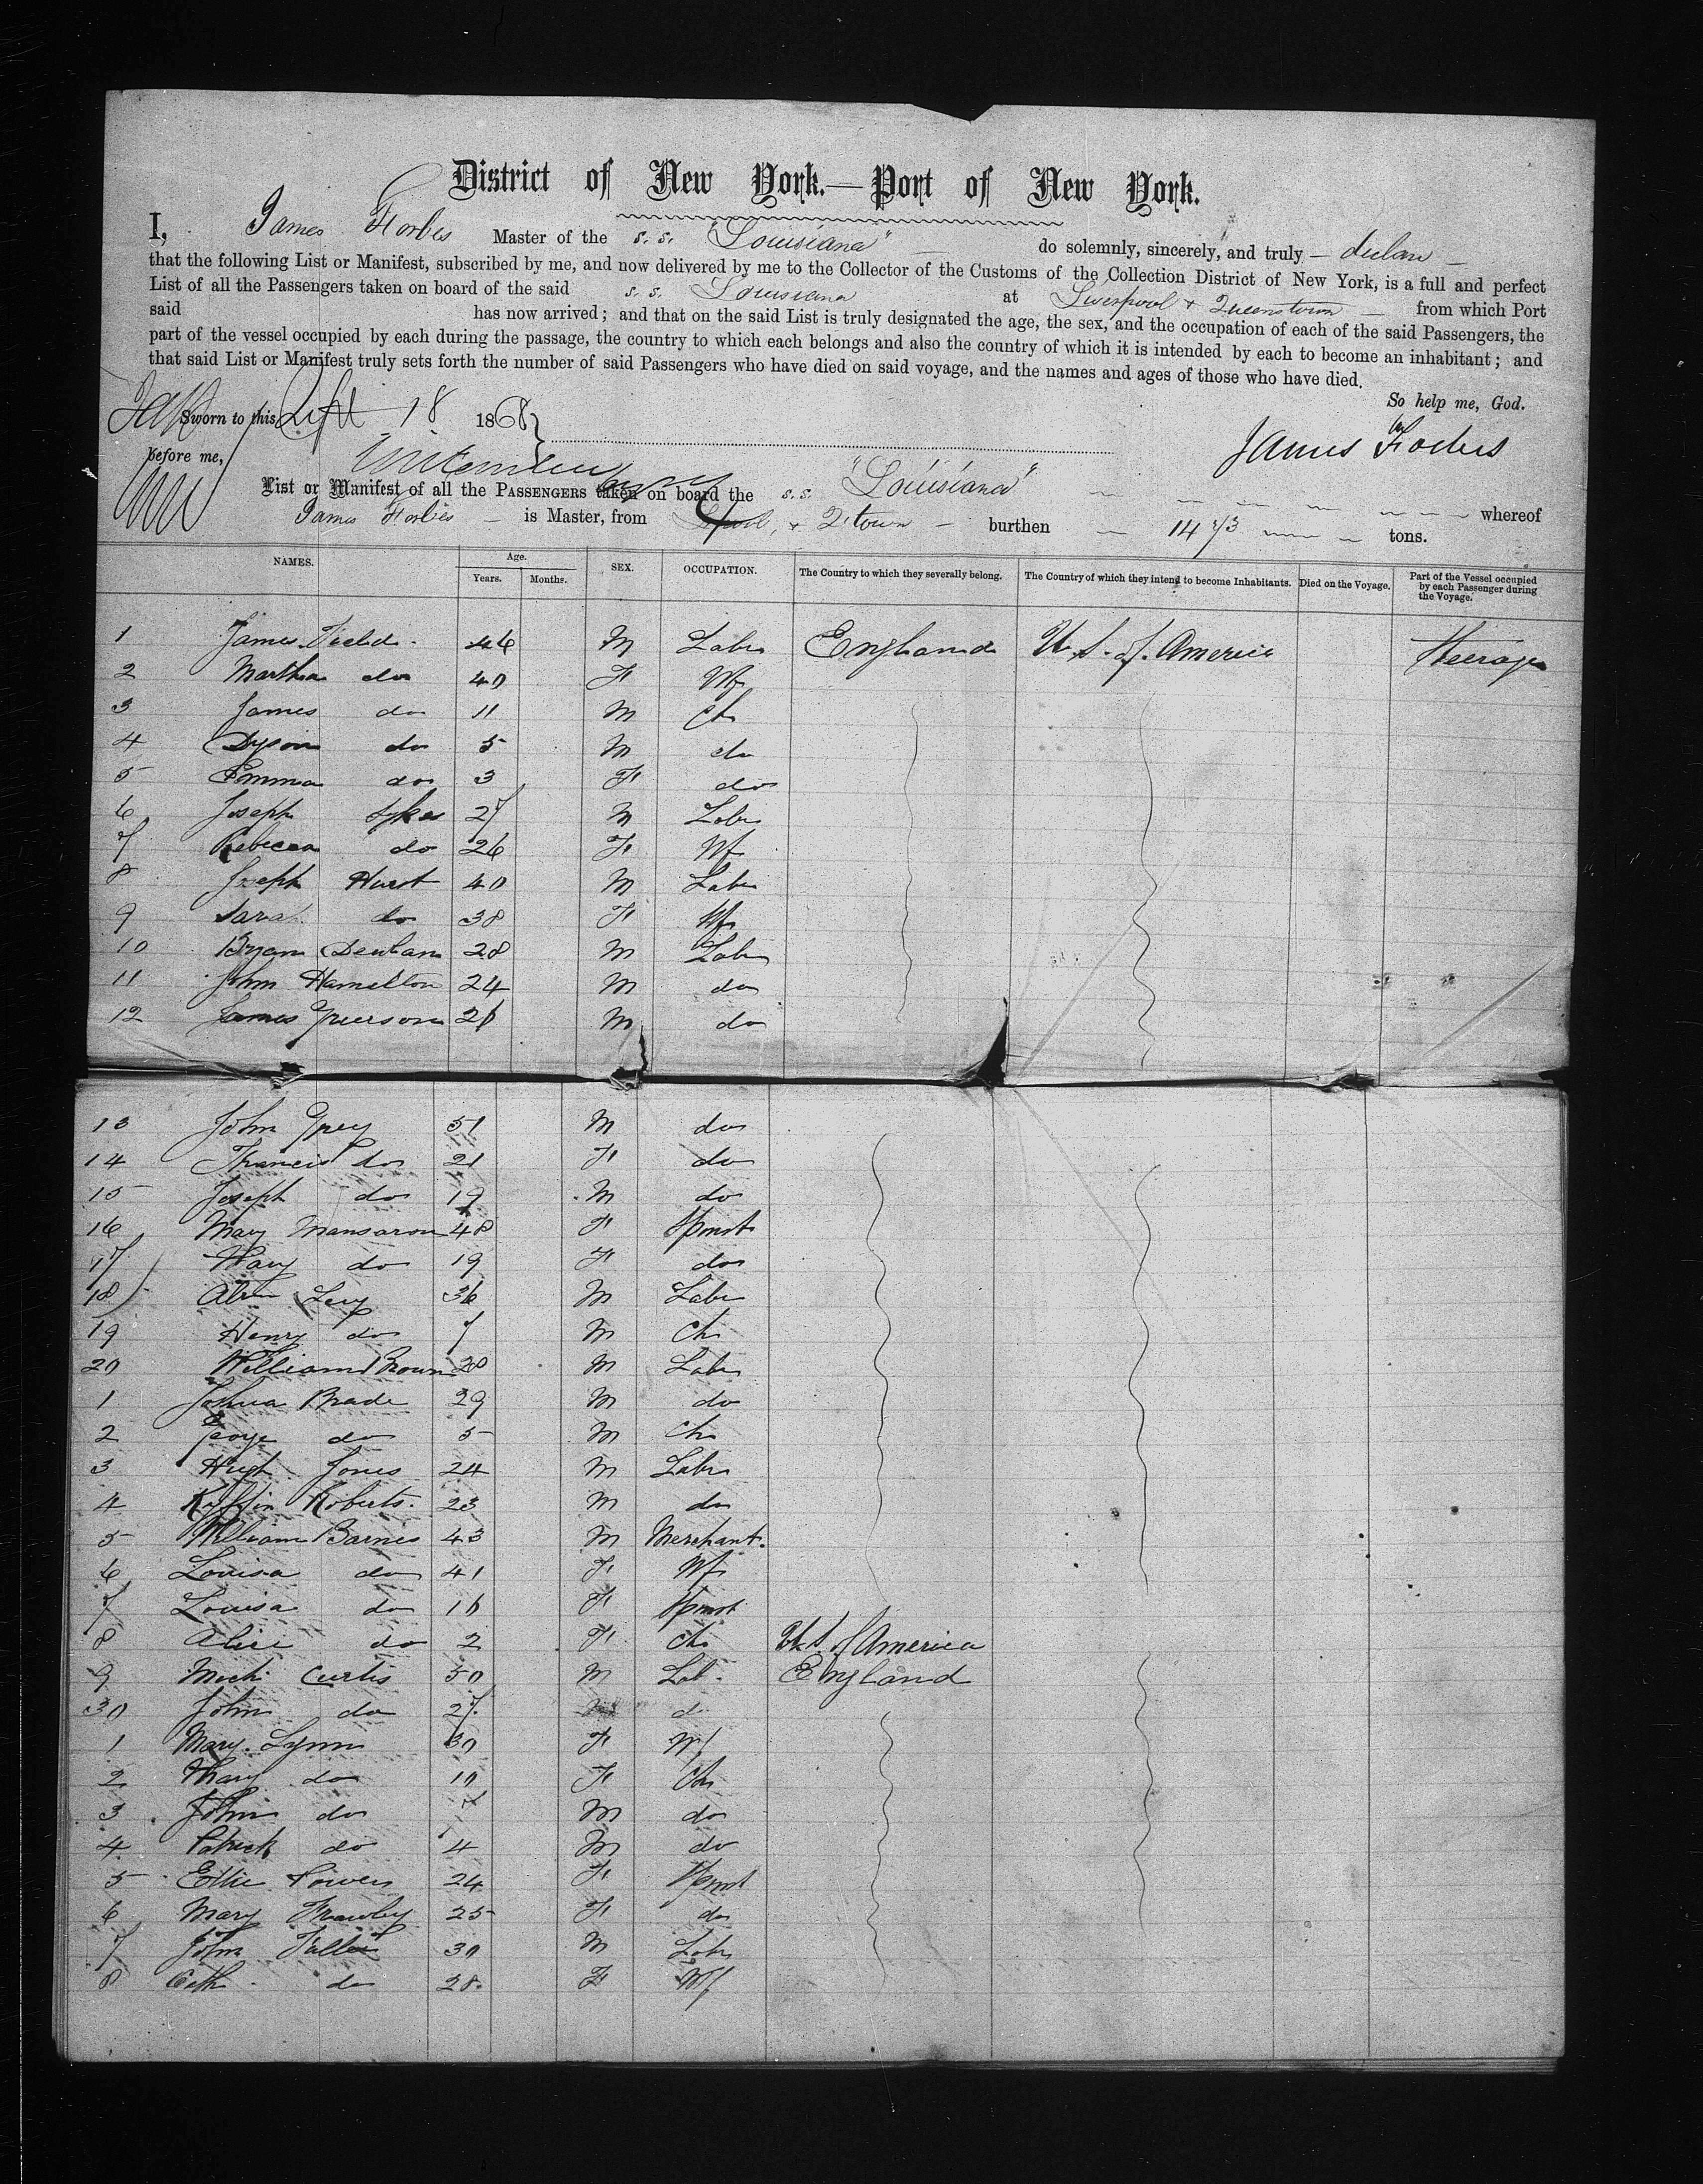 District of New York.—Port of New York.
I, James Forbes Master of the s.s. "Louisiana" do solemnly, sincerely, and truly — declare —
that the following List or Manifest, subscribed by me, and now delivered by me to the Collector of the Customs of the Collection District of New York, is a full and perfect
List of all the Passengers taken on board of the said s.s. Louisiana at Liverpool & Queenstown — from which Port
said has now arrived; and that on the said List is truly designated the age, the sex, and the occupation of each of the said Passengers, the
part of the vessel occupied by each during the passage, the country to which each belongs and also the country of which it is intended by each to become an inhabitant; and
that said List or Manifest truly sets forth the number of said Passengers who have died on said voyage, and the names and ages of those who have died.
So help me, God.
Sworn to this Sept 18 1868
James Forbes
before me,
List or Manifest of all the PASSENGERS taken on board the s.s. "Louisiana" whereof
James Forbes — is Master, from L'pool, & Q'town — burthen — 1473 — tons.
NAMES. Age. Years. Months. SEX. OCCUPATION. The Country to which they severally belong. The Country of which they intend to become Inhabitants. Died on the Voyage. Part of the Vessel occupied by each Passenger during the Voyage.
1 James 46 M Labr England U.S. of America Steerage
2 Martha do 40 F Wf
3 James do 11 M Ch
4 Dyson do 5 M do
5 Emma do 3 F do
6 Joseph Sykes 27 M Labr
7 Rebecca do 26 F Wf
8 Joseph Hurst 40 M Labr
9 Sarah do 38 F Wf
10 Denham 28 M Labr
11 John Hamilton 24 M do
12 James M do
13 John Grey 51 M do
14 Francis do 21 F do
15 Joseph do 19 M do
16 Mary 48 F Spinst
17 Mary do 19 F do
18 Abm Levy 36 M Labr
19 Henry do 7 M Ch
20 William Brown 28 M Labr
1 Joshua Brade 29 M do
2 George do 5 M Ch
3 Hugh Jones 24 M Labr
4 Kyffin Roberts. 23 M do
5 William Barnes 43 M Merchant.
6 Louisa do 41 F Wf
7 Louisa do F Spinst
8 Alice do 2 F Ch U.S. of America
9 Mich Curtis 50 M Lab. England
30 John do 27
1 Mary Lynn 30 F Wf
2 Mary do 10 F Ch
3 John do 7 M do
4 Patrick do 4 M do
5 Ellie Powers 24 F Spinst
6 Mary Frawley 25 F do
7 John 30 M Labr
8 Cath do 28 F Wf